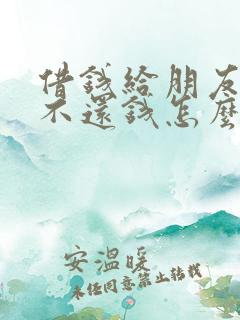 借錢給朋友
不還錢怎麼
安溫暖
未經同意禁止轉載